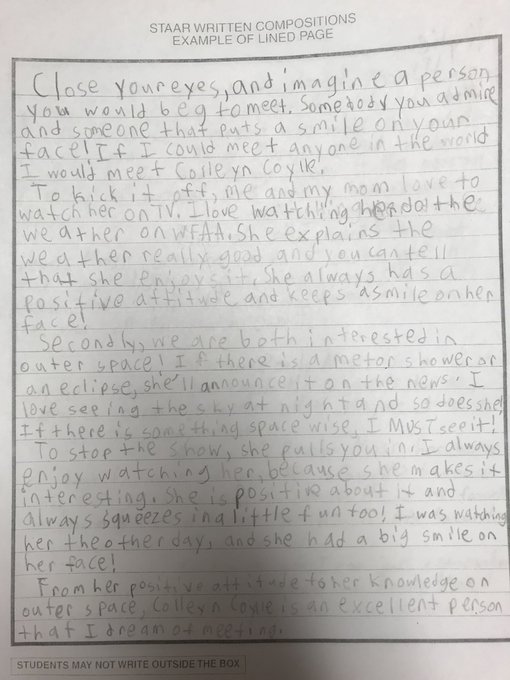 STAAR WRITTEN COMPOSITIONS
EXAMPLE OF LINED PAGE
Close your eyes, and imagine a person
you would beg to meet. Somebody you admire
and someone that puts a smile on your
face! If I could meet anyone in the world
I would meet Colleyn Coyle.
To kick it off, me and my mom love to
watch her on TV. I love watching her do the
weather on WFAA. She explains the
weather really good and you can tell
that she enjoys it. She always has a
positive attitude and keeps a smile on her
face!
Secondly, we are both interested in
outer space! If there is a metor shower or
an eclipse, she'll announce it on the news. I
love seeing the sky at night and so does she!
If there is something space wise, I MUST see it!
To stop the show, she pulls you in. I always
enjoy watching her, because she makes it
interesting. She is positive about it and
always squeezes in a little fun too! I was watching
her the other day, and she had a big smile on
her face!
From her positive attitude to her knowledge on
outer space, Colleyn Coyle is an excellent person
that I dream of meeting.
STUDENTS MAY NOT WRITE OUTSIDE THE BOX